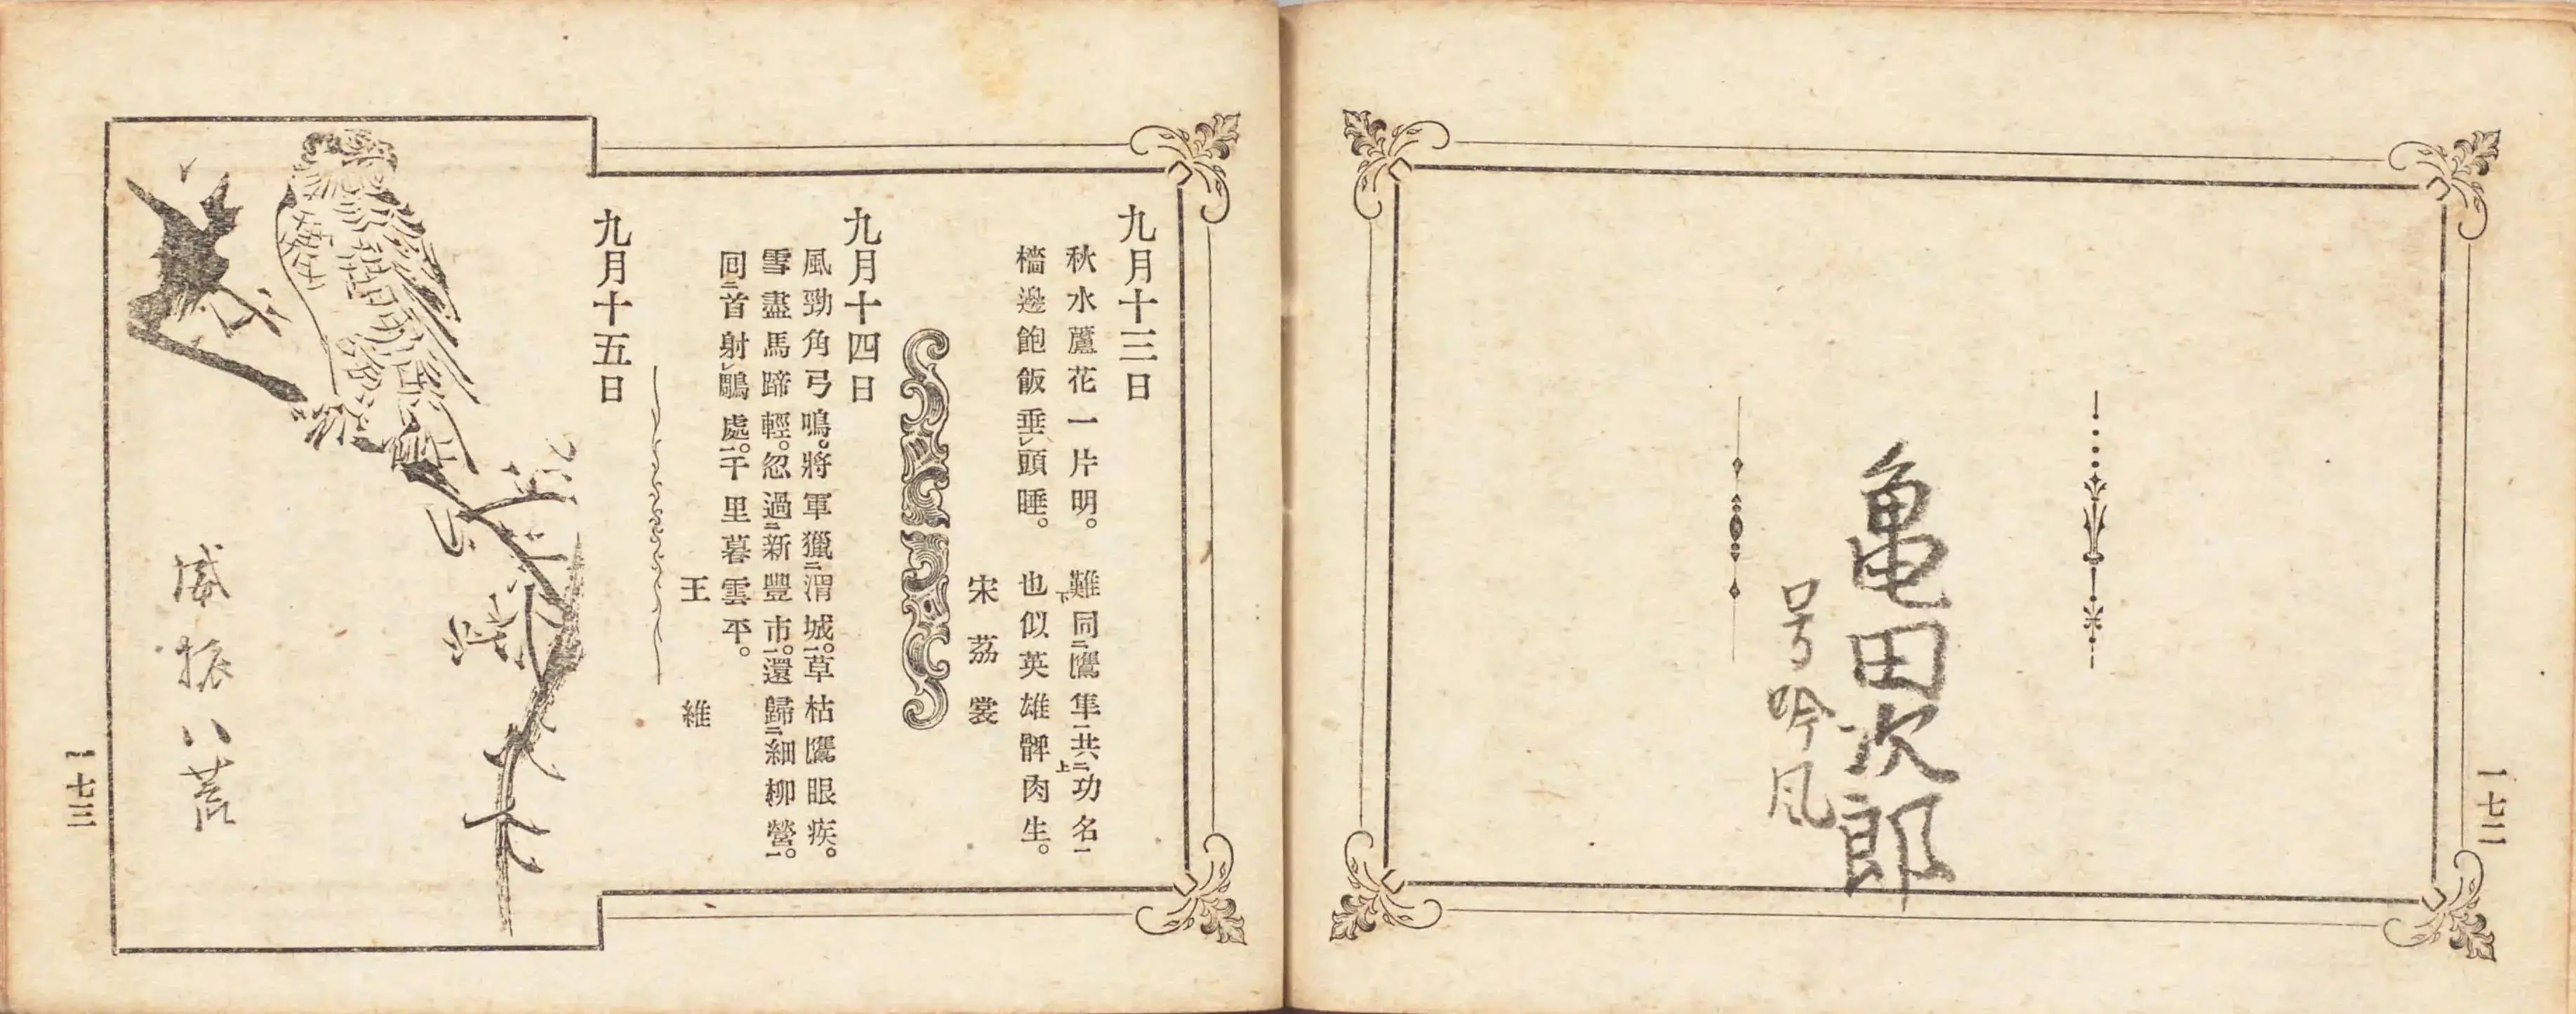 一七二
亀田次郎
号吟風
九月十三日
秋水蘆花一片明。難同鷹隼共功名
檣邊飽飯垂頭睡。也似英雄髀肉生。
宋茘裳
九月十四日
風勁角弓鳴。將軍獵渭城。草枯鷹眼疾。
雪盡馬蹄輕。忽過新豐市。還歸細柳營。
囘首射鵰處。千里暮雲平。
王維
九月十五日
威振八荒
一七三